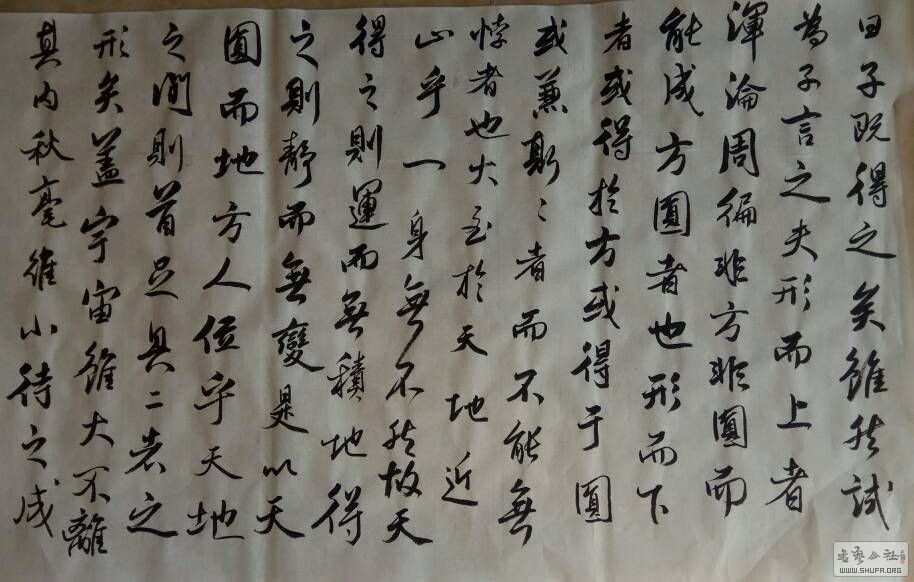 曰子既得之矣雖然試
為子言之夫形而上者
渾淪周徧非方非圓而
能成方圓者也形而下
者或得於方或得于圓
或兼斯二者而不能無
悖者也大至於天地近
止乎一身無不然故天
得之則運而無積地得
之則靜而無變是以天
圓而地方人位乎天地
之間則首足具二者之
形矣蓋宇宙雖大不離
其内秋毫雖小待之成
书艺公社
WWW.SHUFA.ORG